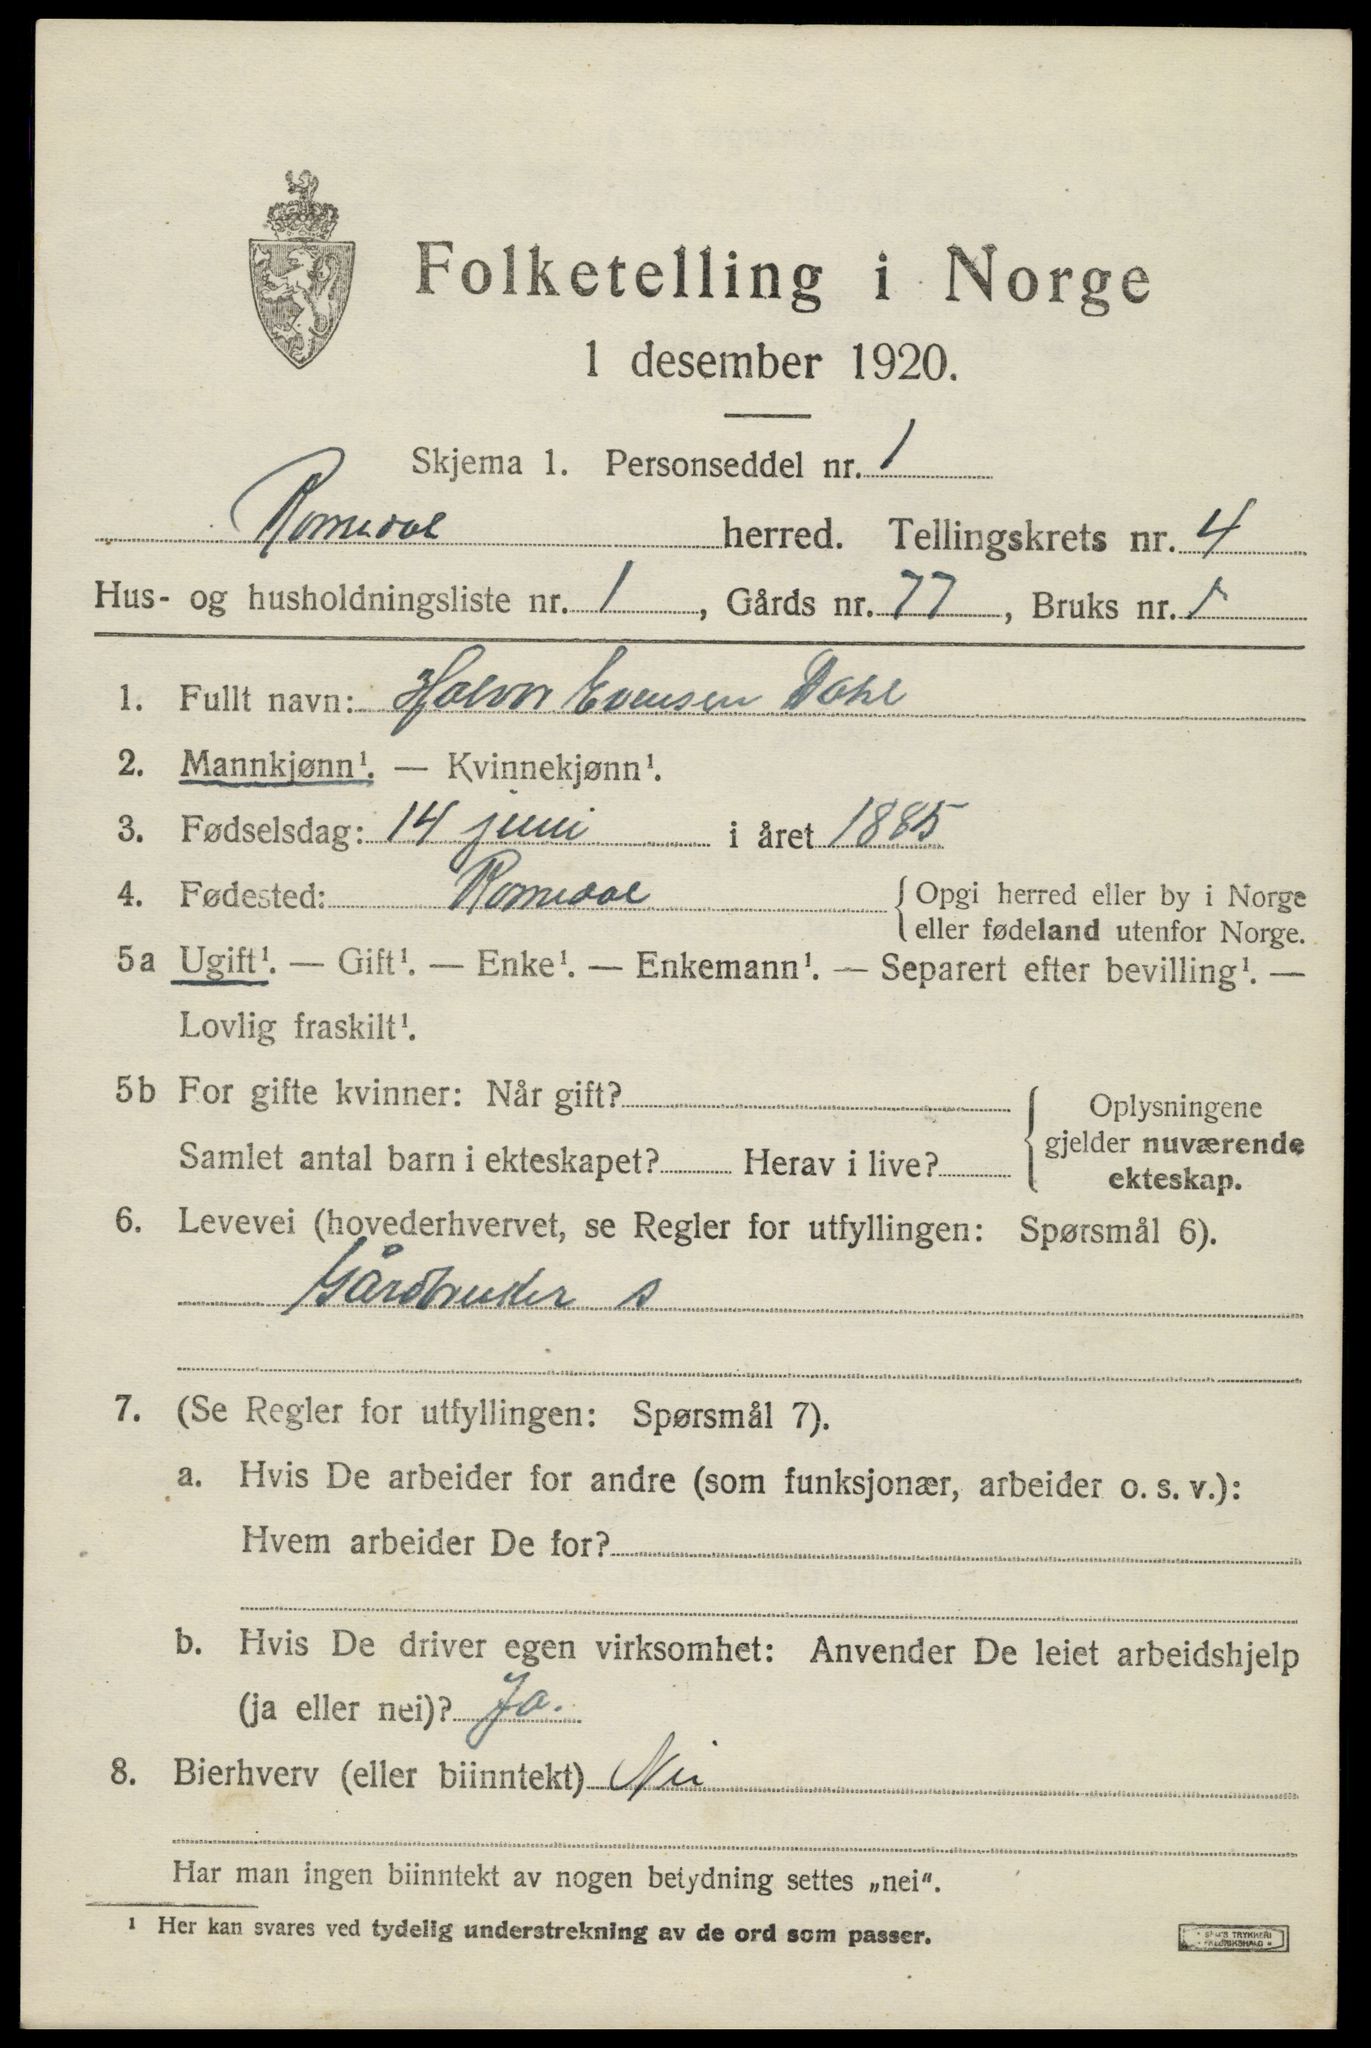 Folketelling i Norge
1 desember 1920.
Skjema 1. Personseddel nr. 1
Romedal herred. Tellingskrets nr. 4
Hus- og husholdningsliste nr. 1, Gårds nr. 77, Bruks nr. 1
1. Fullt navn: Halvor Evensen Dahl
2. Mannkjønn¹. — Kvinnekjønn¹.
3. Fødselsdag: 14 juni i året 1885
4. Fødested: Romedal { Opgi herred eller by i Norge
eller fødeland utenfor Norge.
5a Ugift¹. — Gift¹. — Enke¹. — Enkemann¹. — Separert efter bevilling¹. —
Lovlig fraskilt¹.
5b For gifte kvinner: Når gift? { Oplysningene
gjelder nuværende
Samlet antal barn i ekteskapet? Herav i live?
ekteskap.
6. Levevei (hovederhvervet, se Regler for utfyllingen: Spørsmål 6).
Gårdbruker s
7. (Se Regler for utfyllingen: Spørsmål 7).
a. Hvis De arbeider for andre (som funksjonær, arbeider o. s. v.):
Hvem arbeider De for?
b. Hvis De driver egen virksomhet: Anvender De leiet arbeidshjelp
(ja eller nei)? Ja.
8. Bierhverv (eller biinntekt) Nei
Har man ingen biinntekt av nogen betydning settes „nei“.
¹ Her kan svares ved tydelig understrekning av de ord som passer.
TRYKKERI